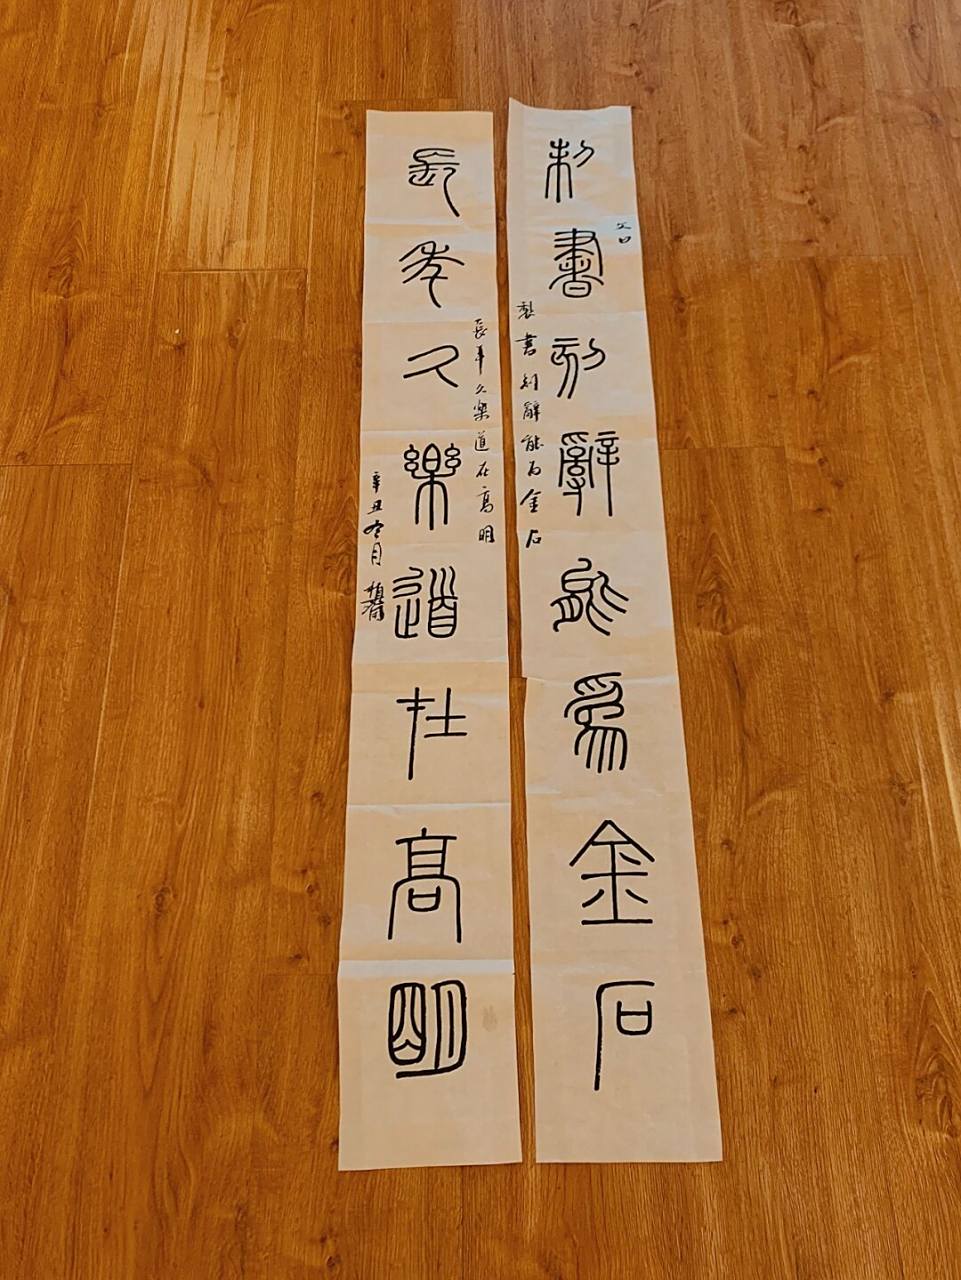 文曰
制書刻辭能為金石
製書刻辭能为金石
長年久樂道在高明
長年久樂道在高明
辛丑冬月